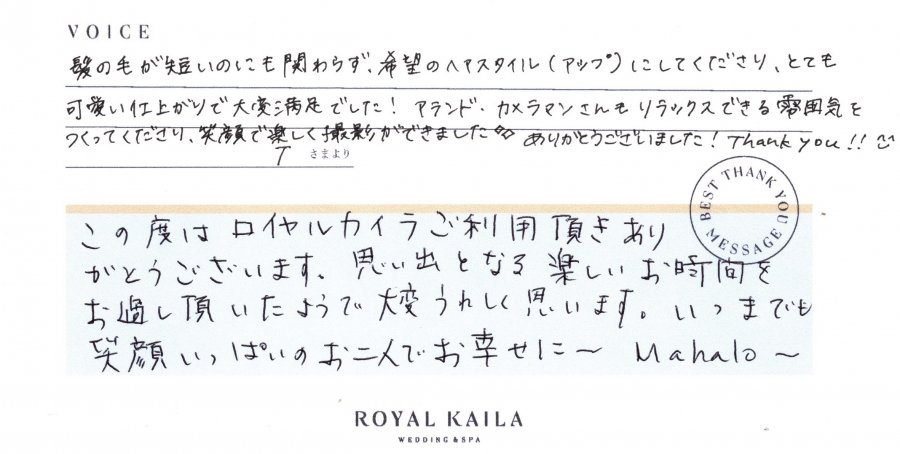 VOICE
髪の毛が短いのにも関わらず、希望のヘアスタイル(アップ)にしてくださり、とても
可愛い仕上がりで大変満足でした！アランド・カメラマンさんもリラックスできる雰囲気を
つくってくださり、笑顔で楽しく撮影ができました ありがとうございました！Thank you!!
T さまより
BEST THANK YOU MESSAGE
この度はロイヤルカイラご利用頂きあり
がとうございます。思い出となる楽しいお時間を
お過し頂いたようで大変うれしく思います。いつまでも
笑顔いっぱいのお二人でお幸せに〜 Mahalo〜
ROYAL KAILA
WEDDING & SPA